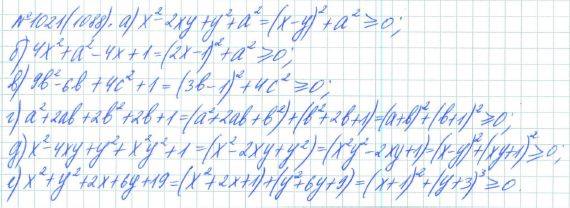 №1021(1088). а) x² - 2xy + y² + a² = (x-y)² + a² ≥ 0;
б) 4x² + a² - 4x + 1 = (2x-1)² + a² ≥ 0;
в) 9b² - 6b + 4c² + 1 = (3b-1)² + 4c² ≥ 0;
г) a² + 2ab + 2b² + 2b + 1 = (a² + 2ab + b²) + (b² + 2b + 1) = (a+b)² + (b+1)² ≥ 0;
д) x² - 4xy + y² + x²y² + 1 = (x² - 2xy + y²) = (x²y² - 2xy + 1) = (x-y)² + (xy+1)² ≥ 0;
е) x² + y² + 2x + 6y + 19 = (x² + 2x + 1) + (y² + 6y + 9) = (x+1)² + (y+3)³ ≥ 0.